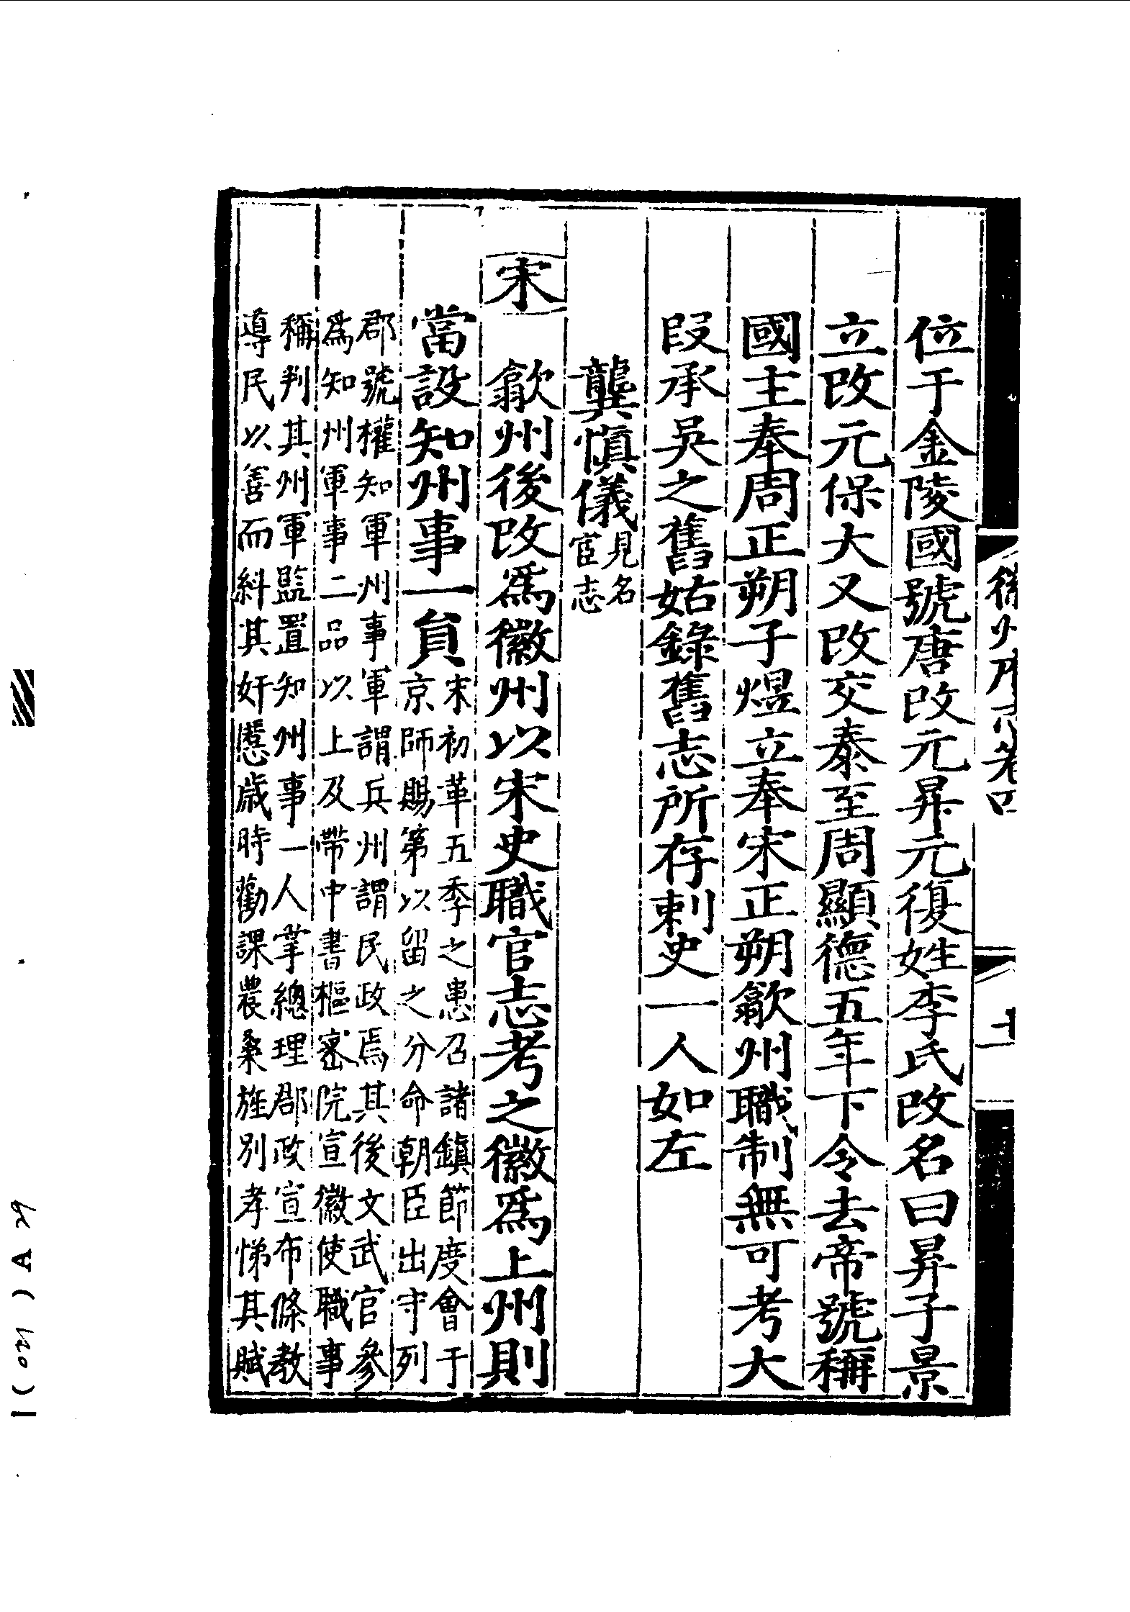 徽州府志卷四
十一
位于金陵國號唐改元昇元復姓李氏改名曰昇子景
立改元保大又改交泰至周顯德五年下令去帝號稱
國主奉周正朔子煜立奉宋正朔歙州職制無可考大
段承吳之舊姑錄舊志所存刺史一人如左
龔慎儀見名
宦志
宋
歙州後改爲徽州以宋史職官志考之徽爲上州則
當設知州事一員宋初革五季之患召諸鎮節度會于
京師賜第以留之分命朝臣出守列
郡號權知軍州事軍謂兵州謂民政焉其後文武官參
爲知州軍事二品以上及帶中書樞密院宣徽使職事
稱判其州軍監置知州事一人掌總理郡政宣布條教
導民以善而糾其奸慝歲時勸課農桑旌別孝悌其賦